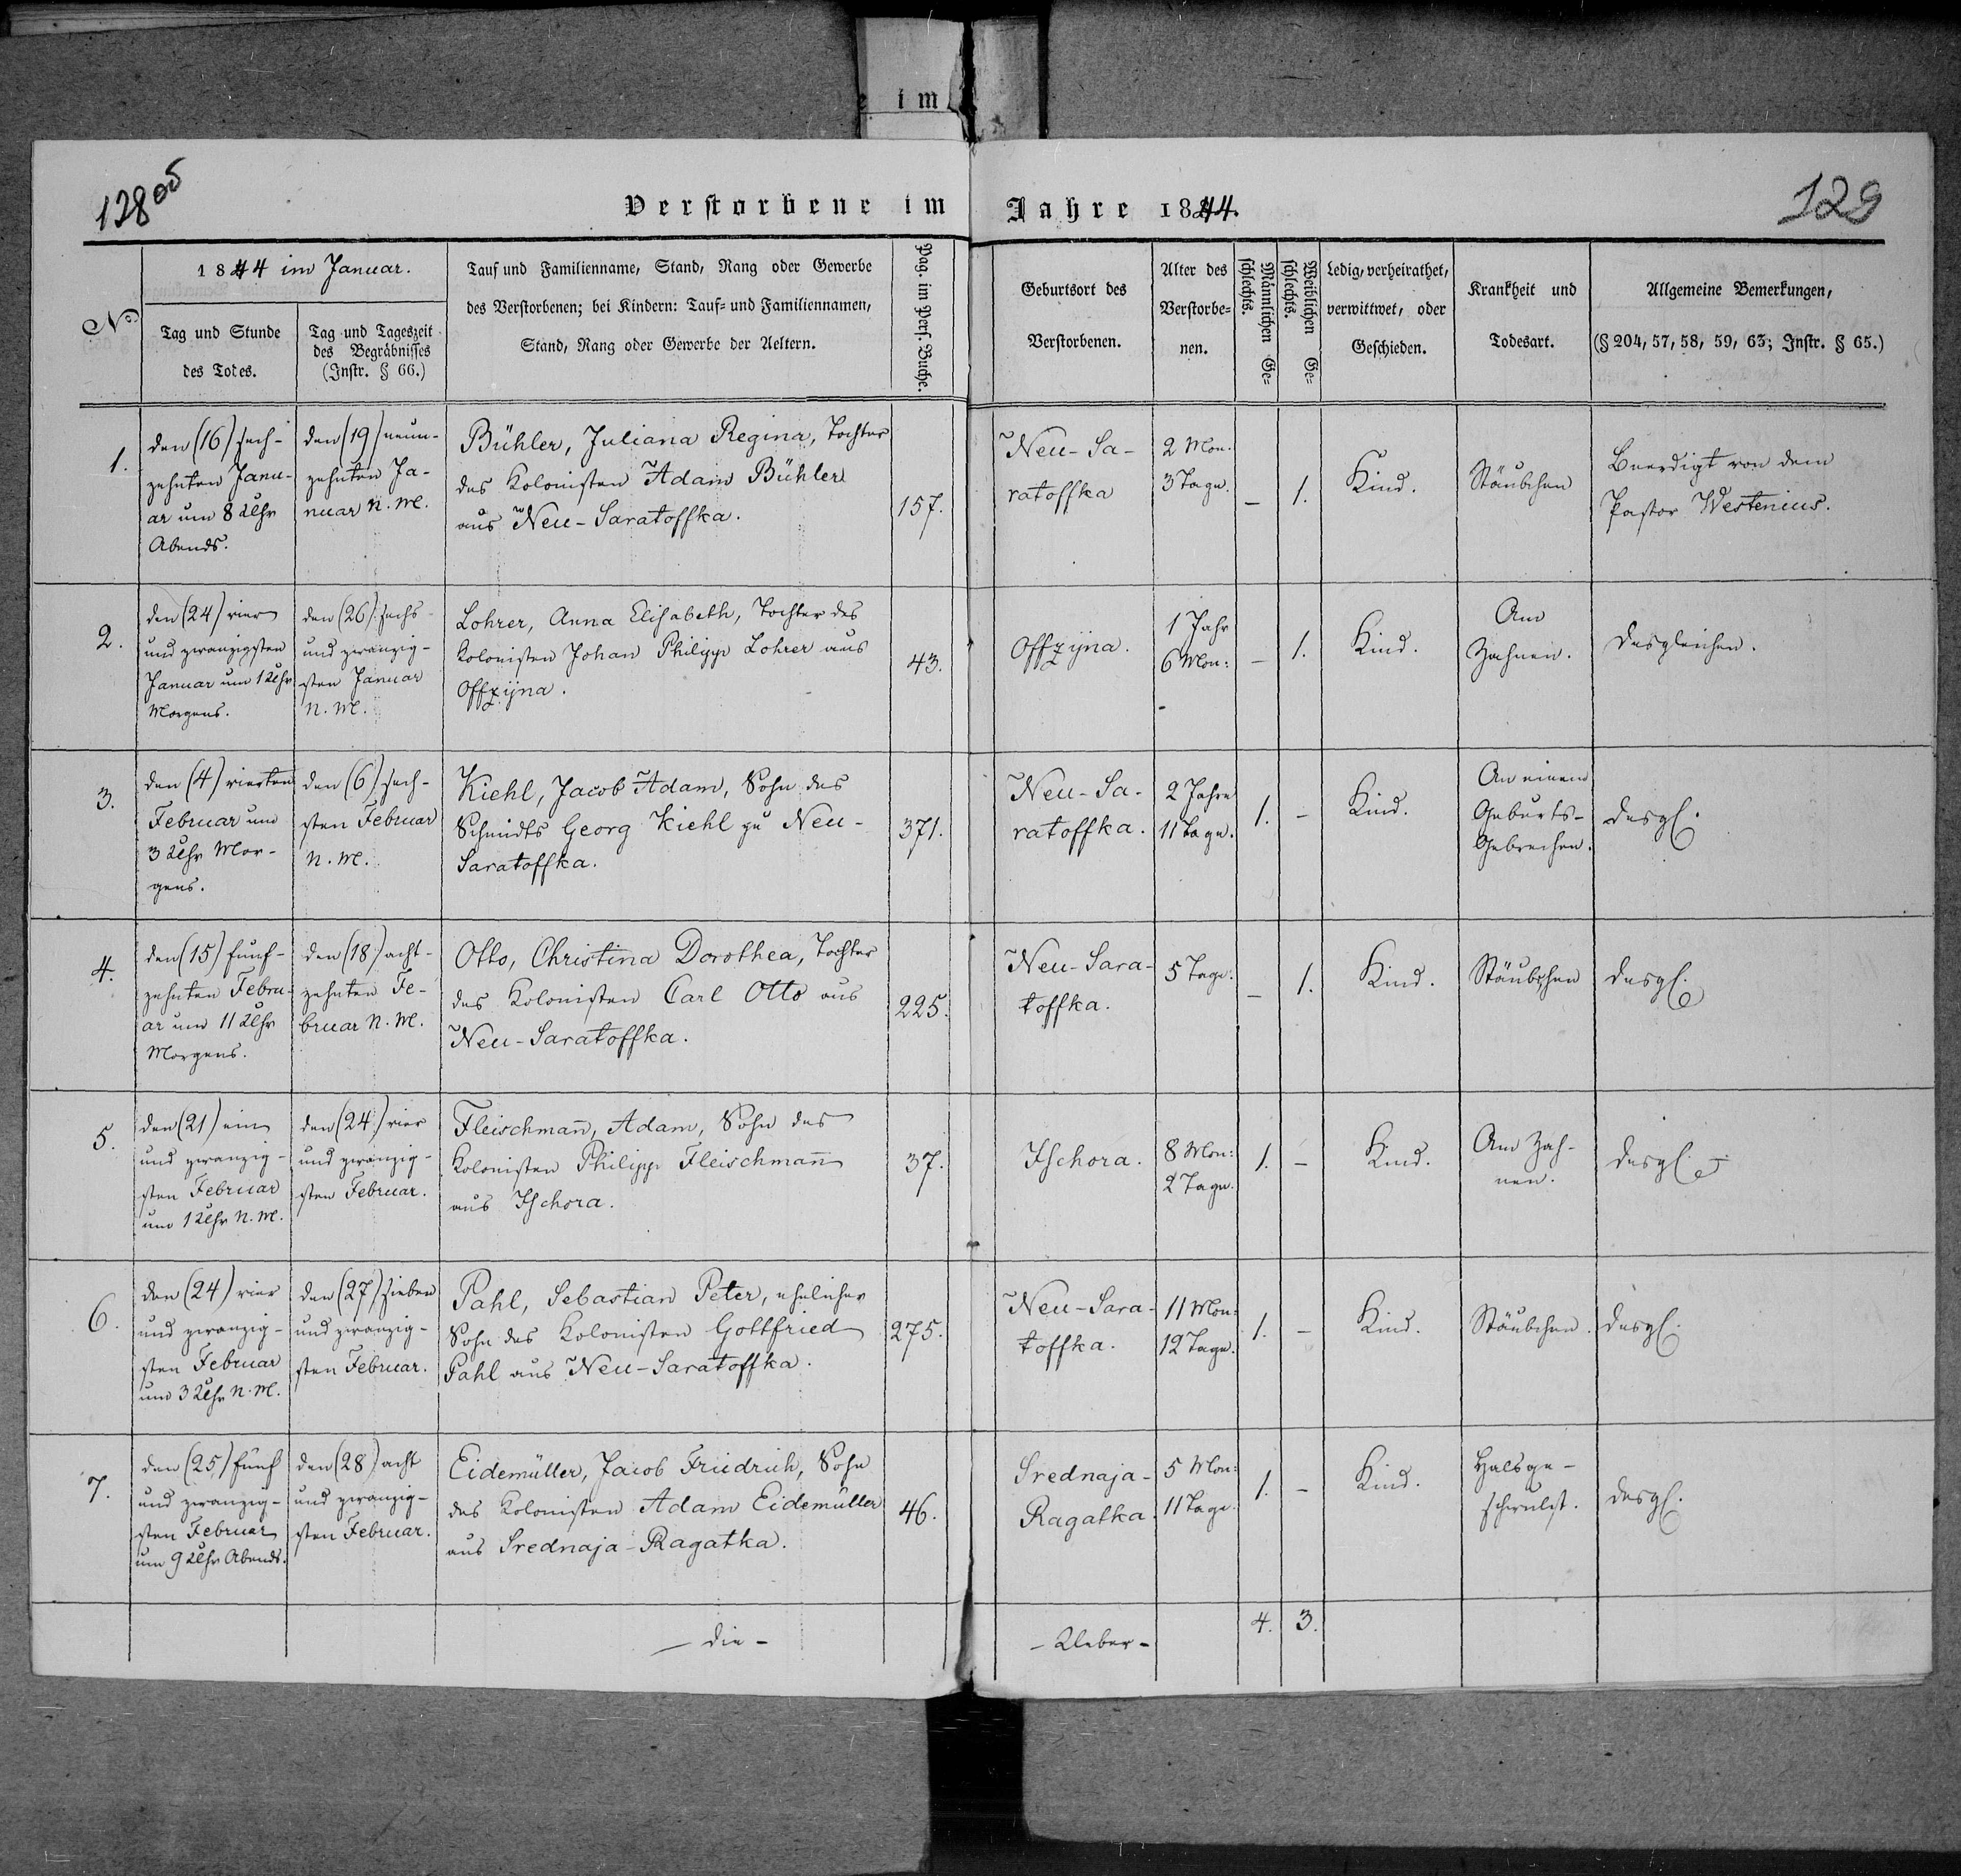 e im
128 об
129
Verstorbene im Jahre 1844.
No
1844 im Januar.
Tag und Stunde
des Todes.
Tag und Tageszeit
des Begräbnisses
(Instr. § 66.)
Tauf und Familienname, Stand, Rang oder Gewerbe
des Verstorbenen; bei Kindern: Tauf= und Familiennamen,
Stand, Rang oder Gewerbe der Aeltern.
Pag. im Pers. Buche.
Geburtsort des
Verstorbenen.
Alter des
Verstorbe=
nen.
Männlichen Ge=
schlechts.
Weiblichen Ge=
schlechts.
Ledig, verheirathet,
verwittwet, oder
Geschieden.
Krankheit und
Todesart.
Allgemeine Bemerkungen,
(§ 204, 57, 58, 59, 63; Instr. § 65.)
1.
den (16) sech-
zehnten Janu-
ar um 8 Uhr
Abends.
den (19) neun-
zehnten Ja-
nuar N. M.
Bühler, Juliana Regina, Tochter
des Kolonisten Adam Bühler
aus Neu-Saratoffka.
157.
Neu-Sa-
ratoffka
2 Mon.
3 Tage.
-
1.
Kind.
Stäubchen
Beerdigt von dem
Pastor Westenius.
2.
den (24) vier
und zwanzigsten
Januar um 1 Uhr
Morgens.
den (26) sechs
und zwanzig-
sten Januar
N. M.
Lohrer, Anna Elisabeth, Tochter des
Kolonisten Johan Philipp Lohrer aus
Offzijna.
43.
Offzijna.
1 Jahr
6 Mon:
-
1.
Kind.
Am
Zahnen.
desgleichen.
3.
den (4) vierten
Februar um
3 Uhr Mor-
gens.
den (6) sech-
sten Februar
N. M.
Kiehl, Jacob Adam, Sohn des
Schmidts Georg Kiehl zu Neu-
Saratoffka.
371.
Neu-Sa-
ratoffka.
2 Jahre
11 Tage.
1.
-
Kind.
An einem
Geburts-
Gebrechen.
desgl.
4.
den (15) fünf-
zehnten Febru-
ar um 11 Uhr
Morgens.
den (18) acht-
zehnten Fe-
bruar N. M.
Otto, Christina Dorothea, Tochter
des Kolonisten Carl Otto aus
Neu-Saratoffka.
225.
Neu-Sara-
toffka.
5 Tage.
-
1.
Kind.
Stäubchen
desgl.
5.
den (21) ein
und zwanzig-
sten Februar
um 1 Uhr N. M.
den (24) vier
und zwanzig-
sten Februar.
Fleischmañ, Adam, Sohn des
Kolonisten Philipp Fleischmañ
aus Ischora.
37.
Ischora.
8 Mon:
2 Tage.
1.
-
Kind.
Am Zah-
nen.
desgl.
6.
den (24) vier
und zwanzig-
sten Februar
um 3 Uhr N. M.
den (27) sieben
und zwanzig-
sten Februar.
Pahl, Sebastian Peter, ehelicher
Sohn des Kolonisten Gottfried
Pahl aus Neu-Saratoffka.
275.
Neu-Sara-
toffka.
11 Mon:
12 Tage.
1.
-
Kind.
Stäubchen.
desgl.
7.
den (25) fünf
und zwanzig-
sten Februar
um 9 Uhr Abends.
den (28) acht
und zwanzig-
sten Februar.
Eidemüller, Jacob Friedrich, Sohn
des Kolonisten Adam Eidemüller
aus Srednaja-Ragatka.
46.
Srednaja-
Ragatka.
5 Mon:
11 Tage.
1.
-
Kind.
Halsge-
schwulst.
desgl.
- die -
- Ueber -
4.
3.